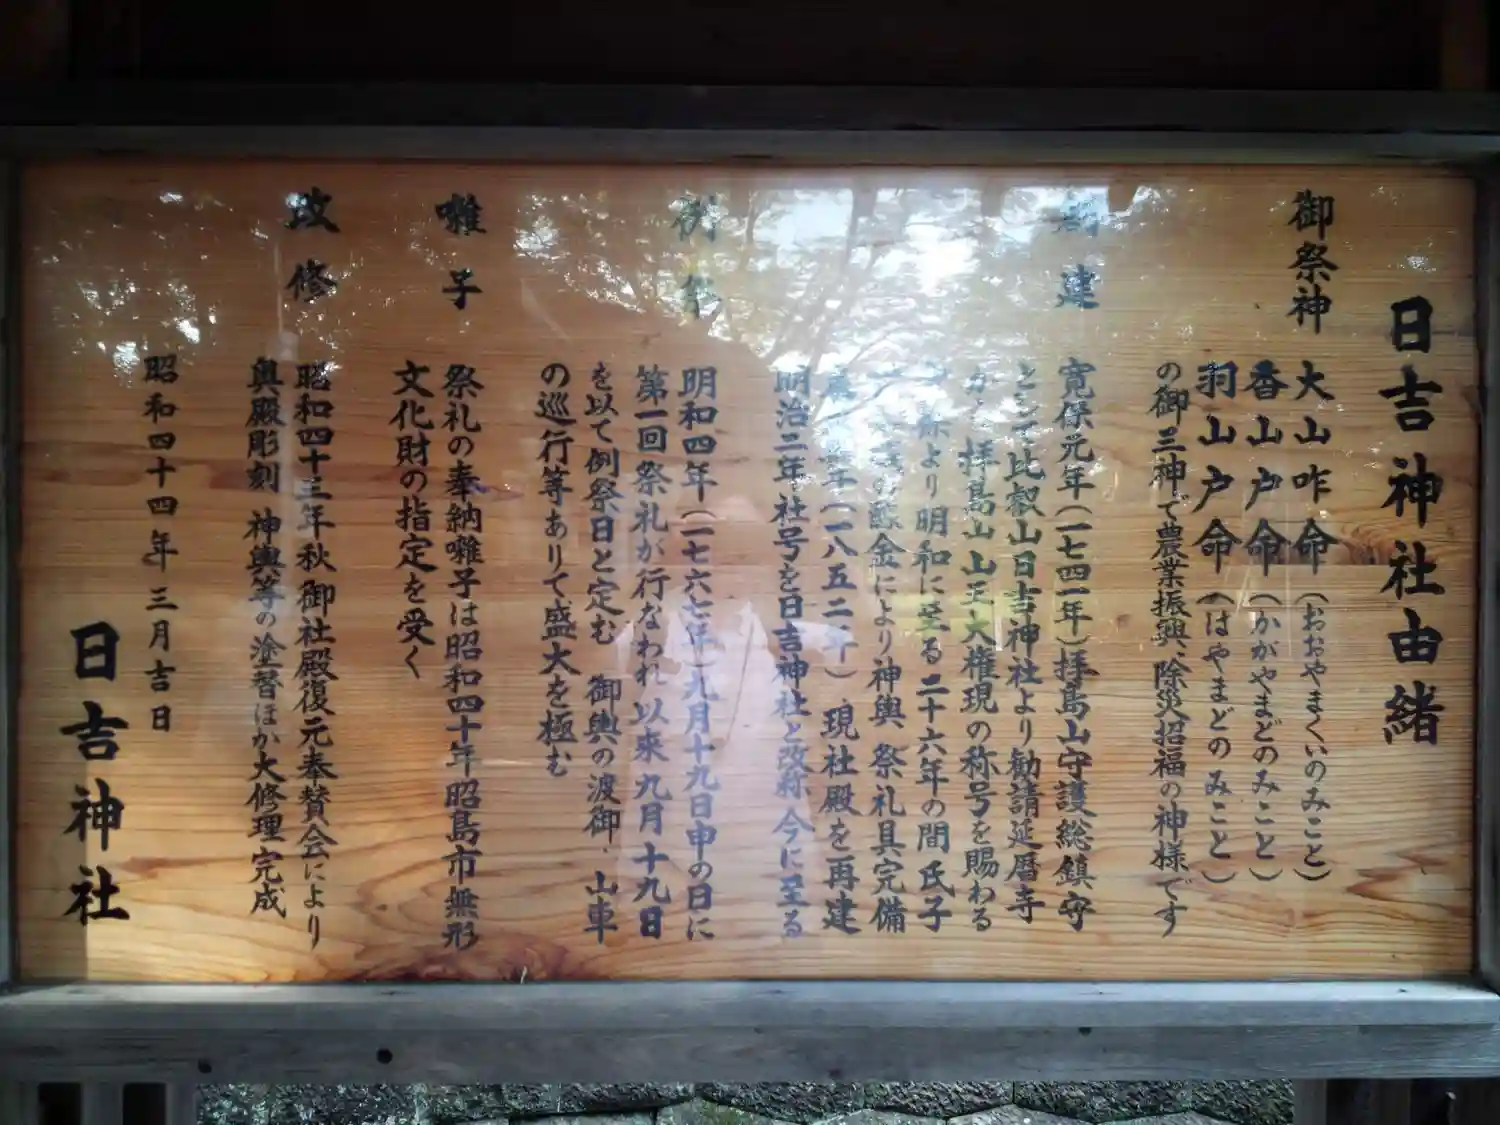 日吉神社由緒
御祭神 大山咋命(おおやまくいのみこと)
香山戸命(かがやまどのみこと)
羽山戸命(はやまどのみこと)
の御三神で農業振興、除災招福の神様です
創建 寛保元年(一七四一年)拝島山守護総鎮守
として比叡山日吉神社より勧請延暦寺
から拝島山山王大権現の称号を賜わる
より明和に至る二十六年の間氏子
の醵金により神輿 祭礼具完備
年(一八五二年)、現社殿を再建
明治二年社号を日吉神社と改称今に至る
例祭 明和四年(一七六七年)九月十九日申の日に
第一回祭礼が行なわれ以来九月十九日
を以て例祭日と定む 御輿の渡御、山車
の巡行等ありて盛大を極む
囃子 祭礼の奉納囃子は昭和四十年昭島市無形
文化財の指定を受く
改修 昭和四十三年秋御社殿復元奉賛会により
奥殿彫刻 神輿等の塗替ほか大修理完成
昭和四十四年三月吉日
日吉神社